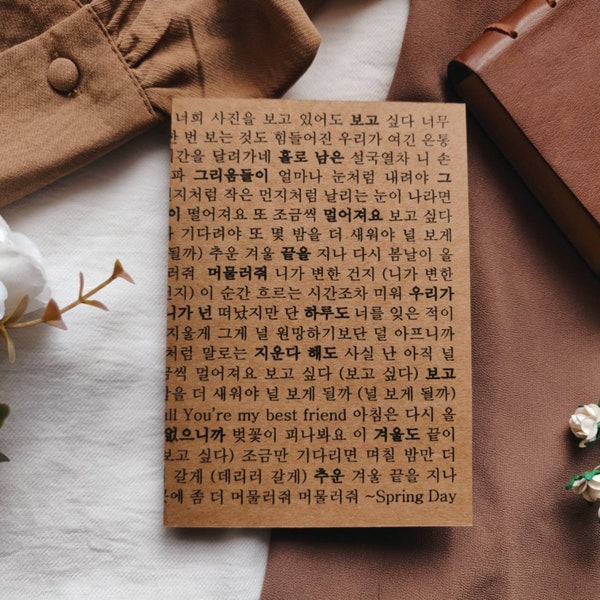 너희 사진을 보고 있어도 보고 싶다 너무
한 번 보는 것도 힘들어진 우리가 여긴 온통
시간을 달려가네 홀로 남은 설국열차 니 손
파 그리움들이 얼마나 눈처럼 내려야 그
먼지처럼 작은 먼지처럼 날리는 눈이 나라면
이 떨어져요 또 조금씩 멀어져요 보고 싶다
기다려야 또 몇 밤을 더 새워야 널 보게
될까) 추운 겨울 끝을 지나 다시 봄날이 올
러줘 머물러줘 니가 변한 건지 (니가 변한
건지) 이 순간 흐르는 시간조차 미워 우리가
니가 넌 떠났지만 단 하루도 너를 잊은 적이
지울게 그게 널 원망하기보단 덜 아프니까
처럼 말로는 지운다 해도 사실 난 아직 널
금씩 멀어져요 보고 싶다 (보고 싶다) 보고
밤을 더 새워야 널 보게 될까 (널 보게 될까)
all You're my best friend 아침은 다시 올
없으니까 벚꽃이 피나봐요 이 겨울도 끝이
보고 싶다) 조금만 기다리면 며칠 밤만 더
갈게 (데리러 갈게) 추운 겨울 끝을 지나
좀 더 머물러줘 머물러줘 ~Spring Day